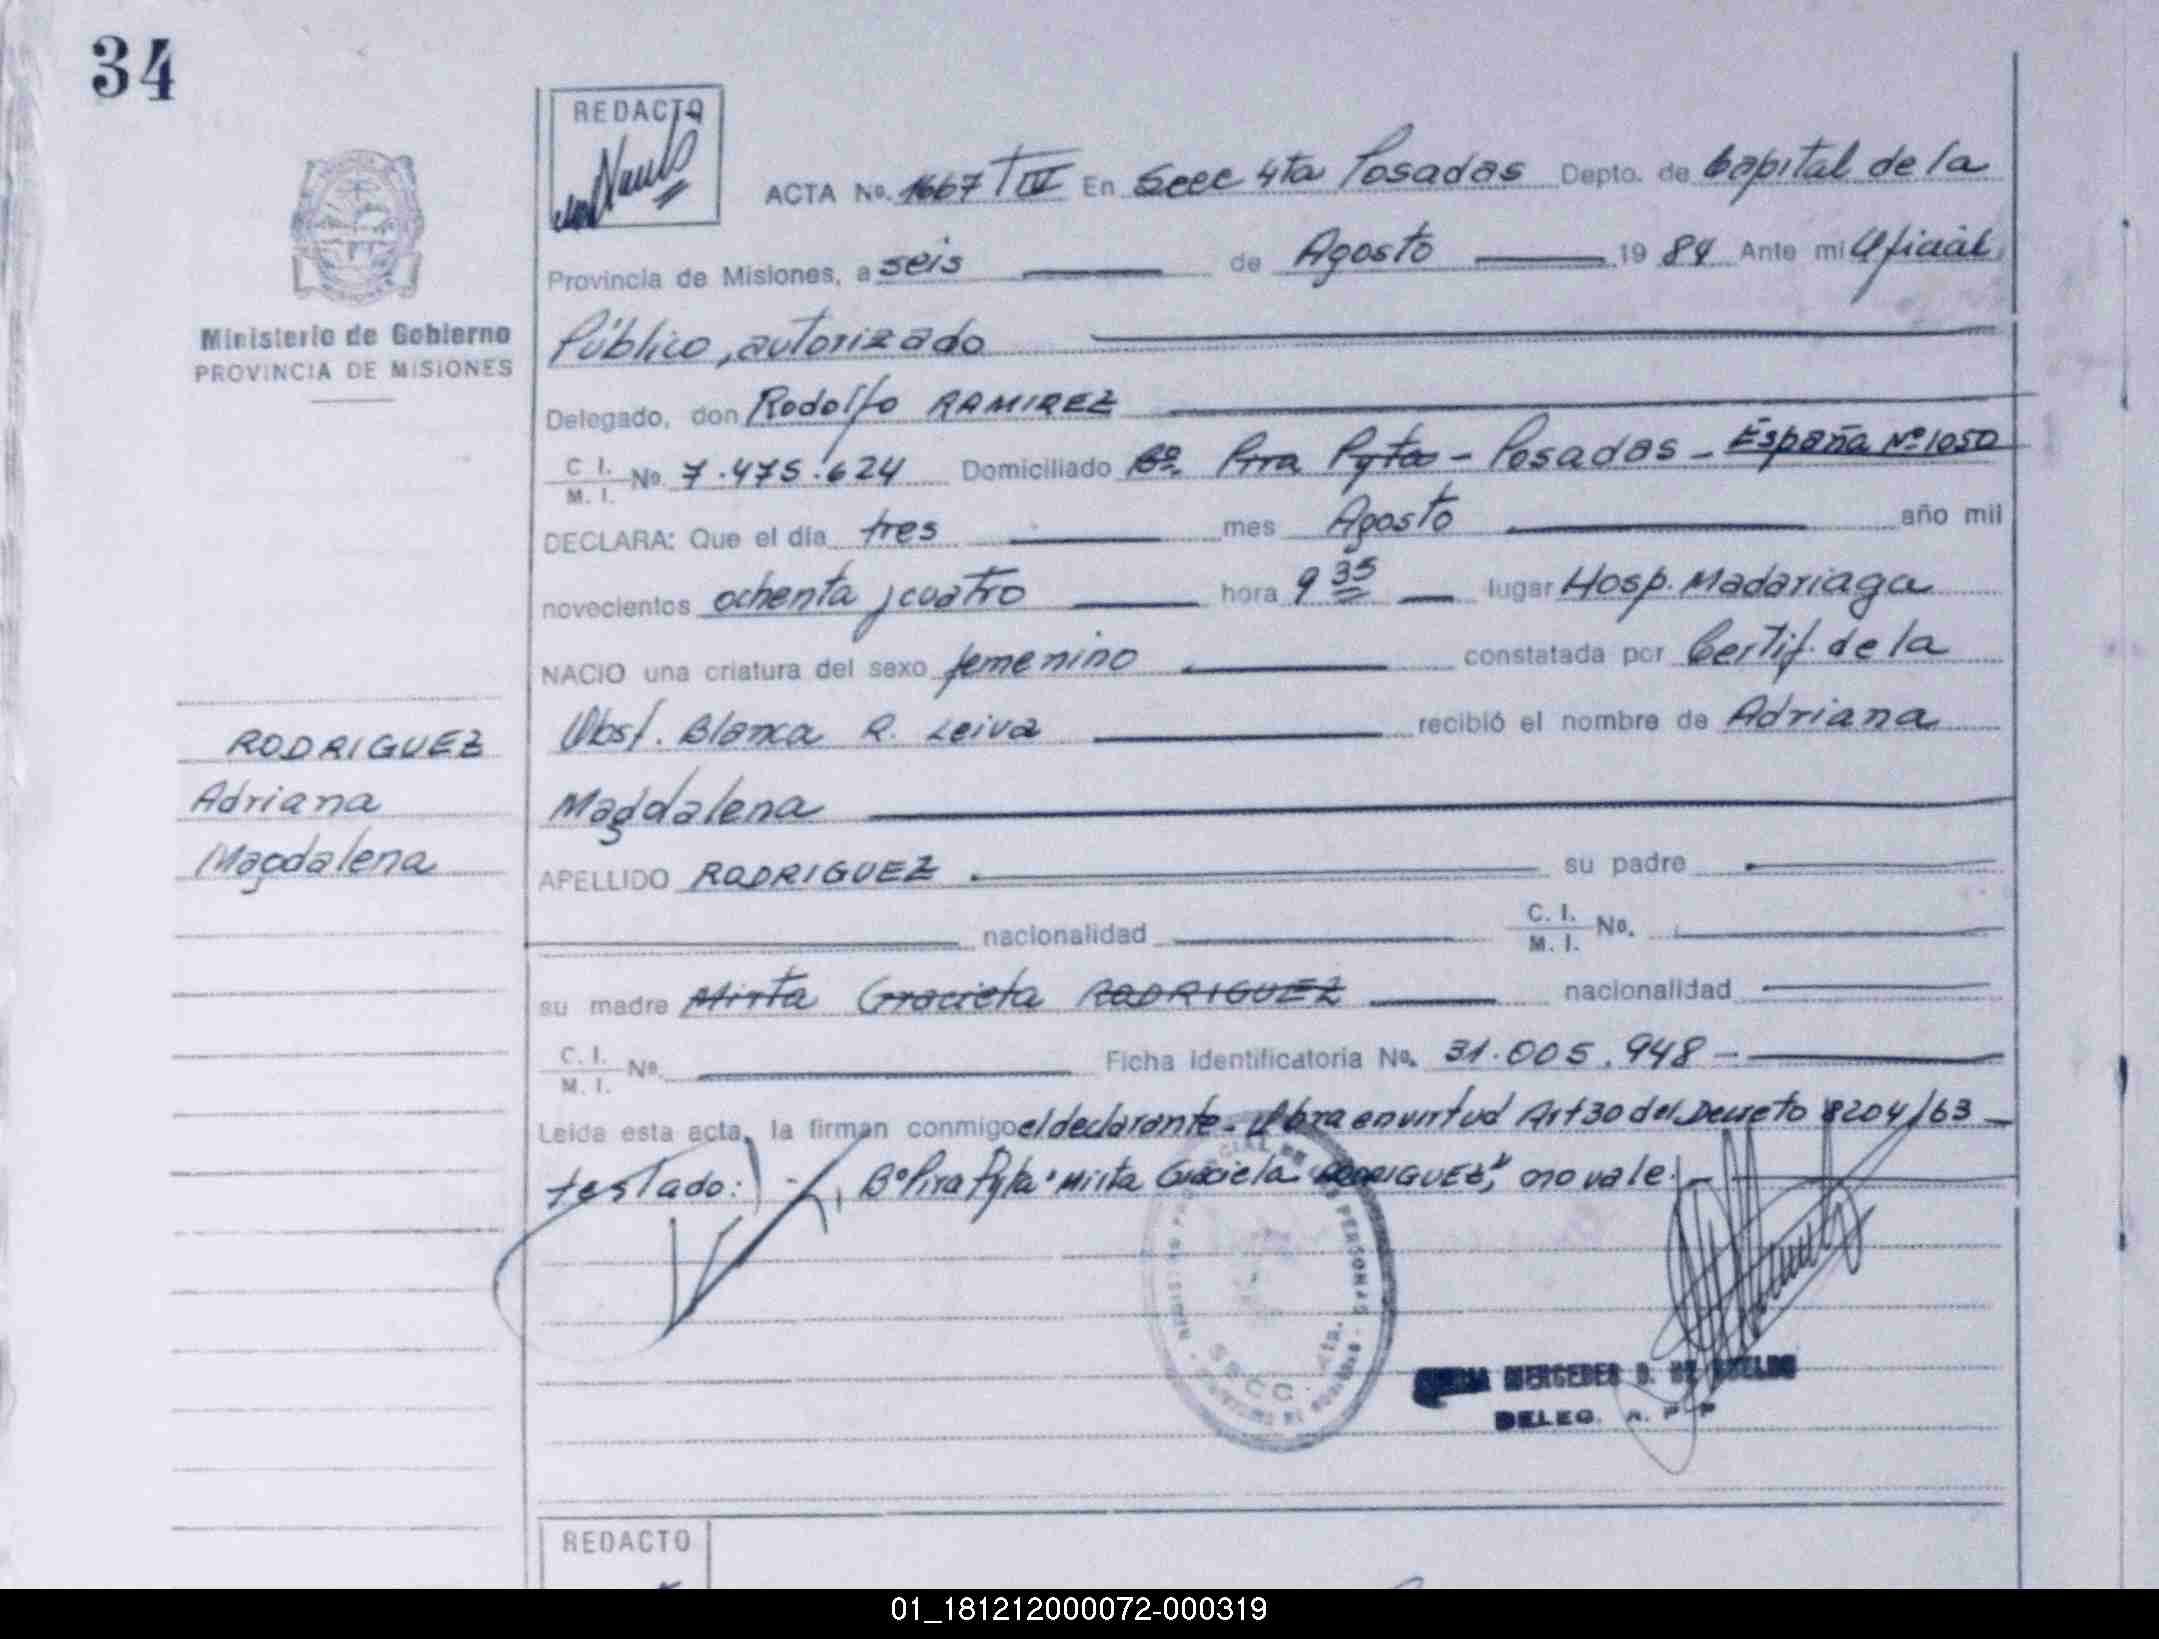 34
REDACTO
ACTA No. 1667 T IV En Secc 4ta Posadas Depto. de Capital de la
Provincia de Misiones, a seis de Agosto 19 84 Ante mi Oficial
Ministerio de Gobierno
PROVINCIA DE MISIONES
Público, autorizado
Delegado, don Rodolfo RAMIREZ
C. I. / M. I. No. 7.475.624 Domiciliado Bº. Pira Pyta - Posadas - España Nº 1050
DECLARA: Que el día tres mes Agosto año mil
novecientos ochenta y cuatro hora 9 35 lugar Hosp. Madariaga
NACIO una criatura del sexo femenino constatada por Certif. de la
Obst. Blanca R. Leiva recibió el nombre de Adriana
Magdalena
RODRIGUEZ
Adriana
Magdalena
APELLIDO RODRIGUEZ su padre
nacionalidad C. I. / M. I. No.
su madre Mirta Graciela RODRIGUEZ nacionalidad
C. I. / M. I. No. Ficha Identificatoria No. 31.005.948 -
Leida esta acta, la firman conmigo el declarante - Obra en virtud Art 30 del Decreto 8204/63 -
testado: Bº Pira Pyta "Mirta Graciela RODRIGUEZ", no vale -
PERSONAS
MERCEDES D. DE
DELEG. R. P. P
REDACTO
01_181212000072-000319